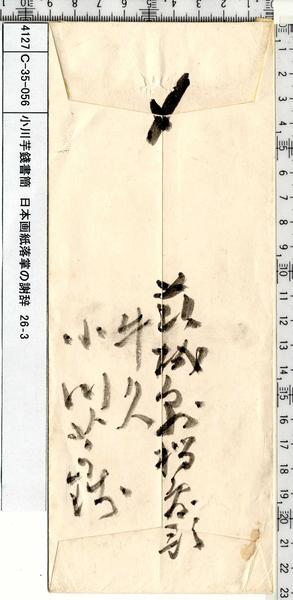 4127 C-35-056 小川芋銭書簡 日本画紙落掌の謝辞 26-3
茨城県稲敷郡
牛久
小川芋銭